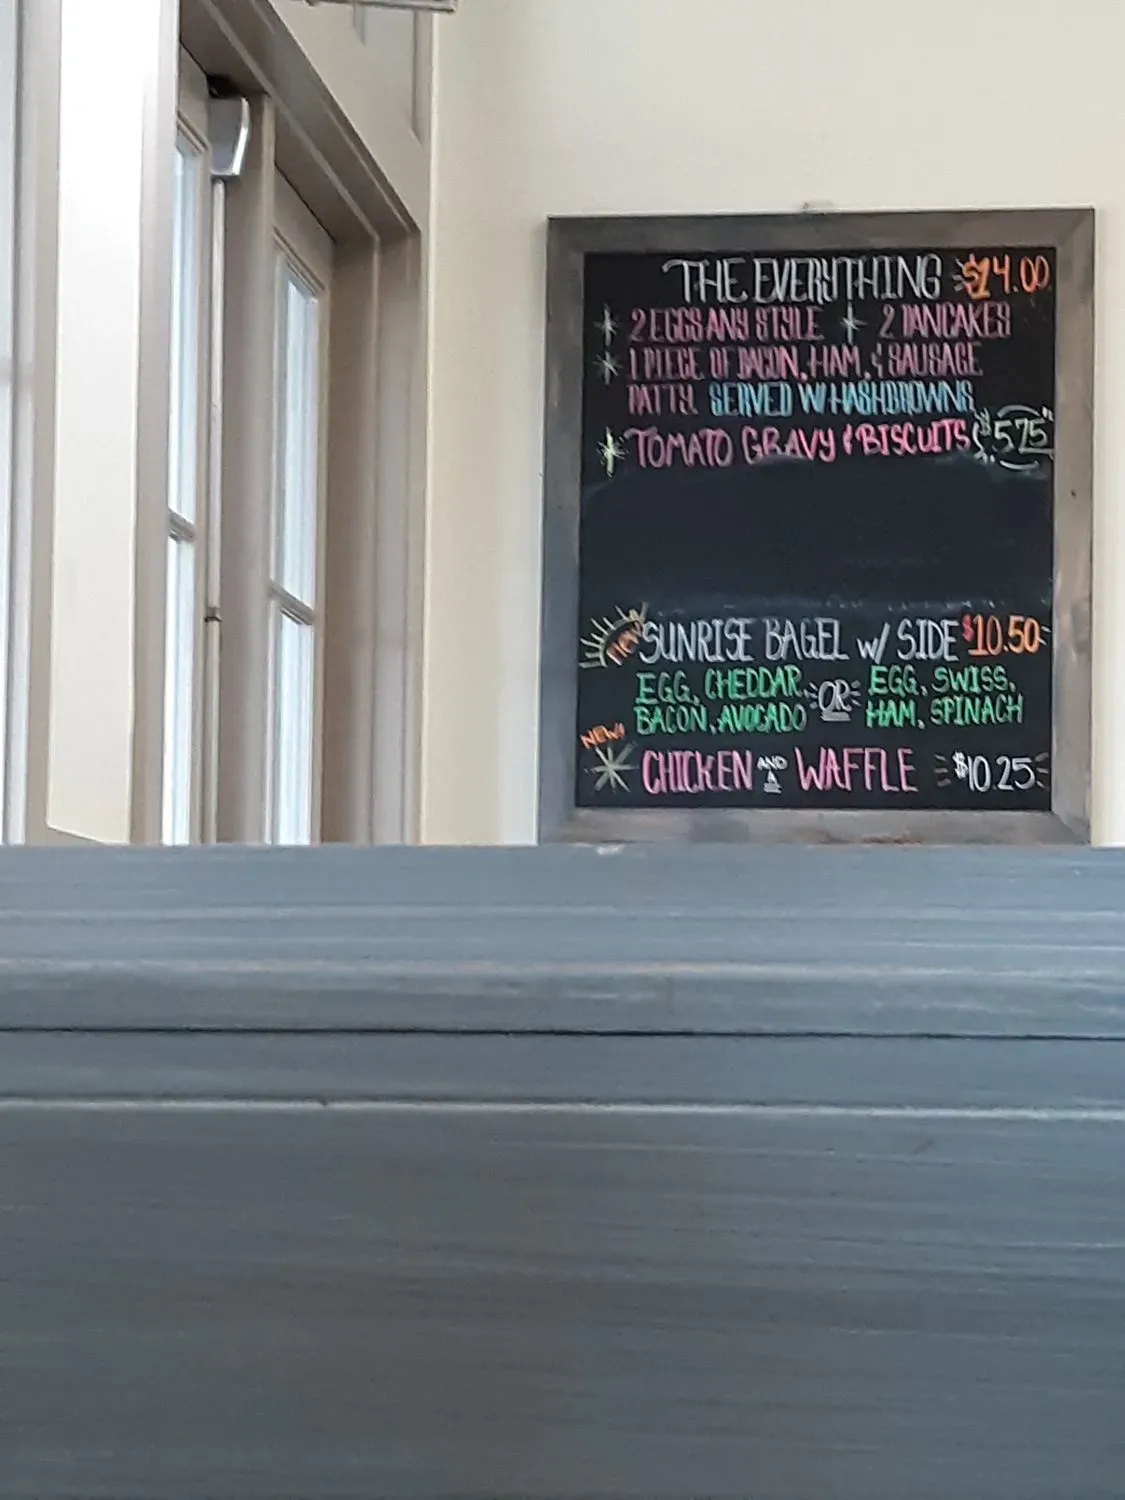 THE EVERYTHING $14.00
2 EGGS ANY STYLE 2 PANCAKES
1 PIECE OF BACON, HAM, & SAUSAGE
PATTY. SERVED W/ HASHBROWNS
TOMATO GRAVY & BISCUITS $5.75
NEW! SUNRISE BAGEL w/ SIDE $10.50
EGG, CHEDDAR, OR EGG, SWISS,
BACON, AVOCADO HAM, SPINACH
NEW!
CHICKEN AND A WAFFLE $10.25